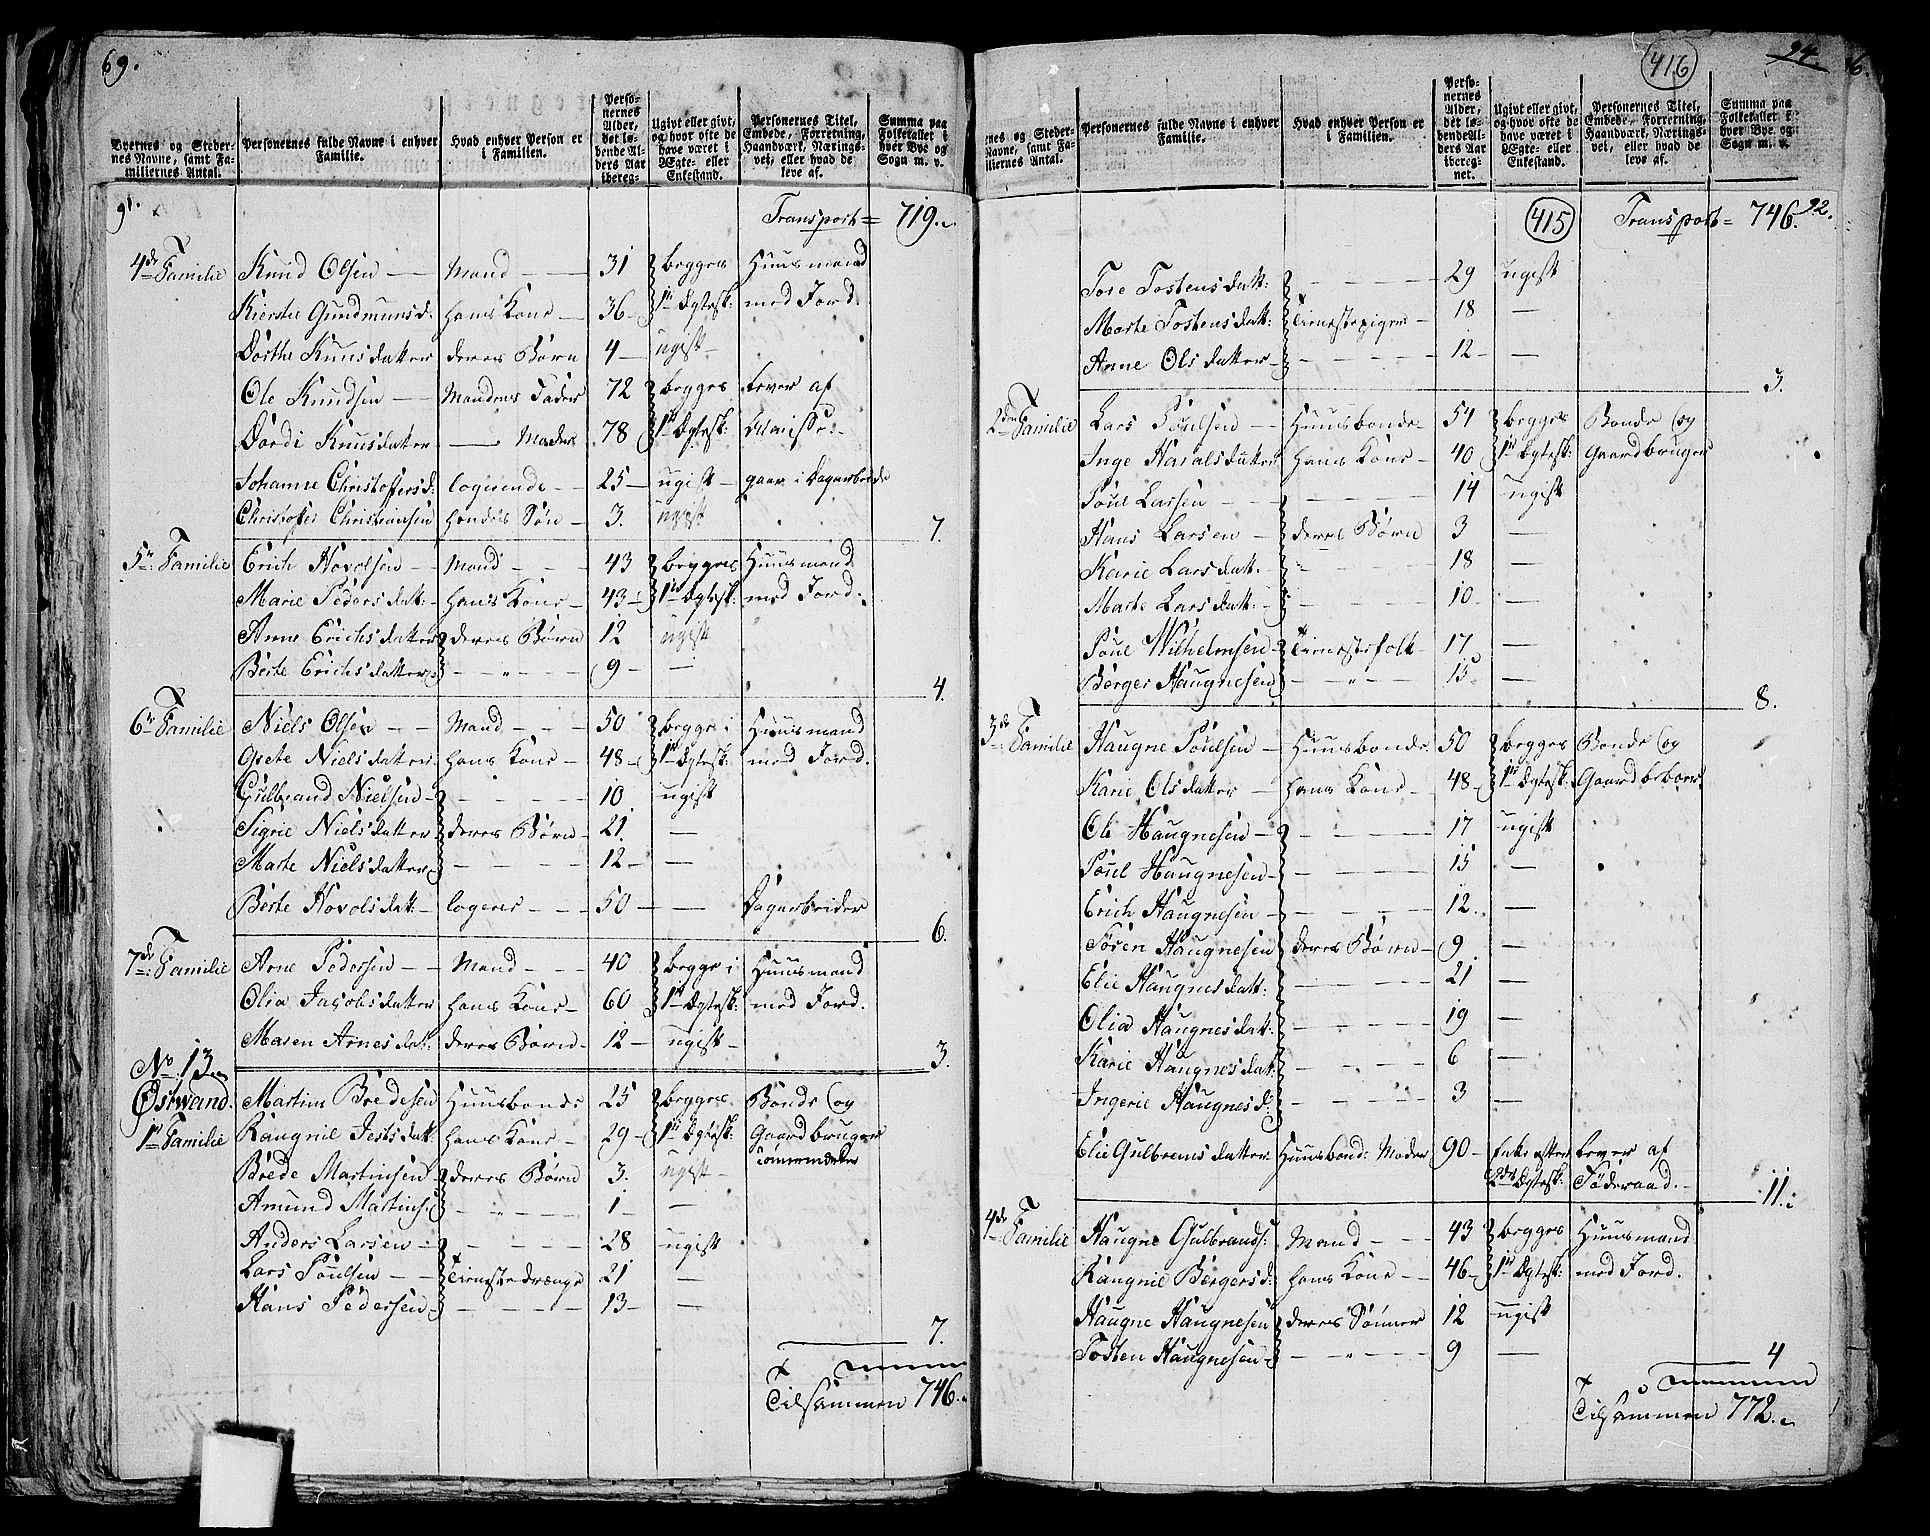 69.
Byernes og Stedernes Navne, samt Familiernes Antal.
Personernes fulde Navne i enhver Familie.
Hvad enhver Person er i Familien.
Personernes Alder, det løbende Alders Aar ibereg-
Ugivt eller givt, og hvor ofte de have været i Ægte- eller Enkestand.
Personernes Titel, Embede, Forretning, Haandværk, Næringsvei, eller hvad de leve af.
Summa paa Folketallet i hver Bye og Sogn m. v.
91.
Transport = 719.
4de Familie Knud Olsen — Mand — 31 begges Huusmand
Kierstie Gundmunsd: hans Kone — 36 — 1ste Ægtesk: med Jord
Dorthe Knusdatter deres Børn 4 — ugift —
Ole Knudsen — Mandens Fader 72 begges lever af
Dordi Knusdatter — Moder 78 1ste Ægtesk:
Johanne Christoffersd: logerende — 25 — ugift — gaar i Dagarbeide
Christoffer Christiansen hendes Søn — 3. ugift
7.
5te Familie Erich Hovolsen — Mand — 43 begges Huusmand
Marie Pedersdatt: hans Kone — 43 — 1ste Ægtesk: med Jord.
Anne Erichsdatter deres Børn 12 ugift
Berte Erichsdatter — " — 9 — —
4.
6te Familie Niels Olsen — Mand — 50 begge i Huusmand
Grete Nielsdatter hans Kone — 48 — 1ste Ægtesk: med Jord.
Gulbrand Nielsen — — 10 ugift
Sigrie Nielsdatter deres Børn — 21. —
Marte Nielsdatter — — 12 — —
Berte Hovolsdatt — logerer — 50 — — Dagarbeider
6.
7de Familie Arne Pedersen — Mand — 40 begge i Huusmand
Olia Jacobsdatter hans Kone — 60 1ste Ægtesk: med Jord.
Maren Arnesdat: deres Børn — 12 — ugift —
3.
No. 13
Østwand.
1ste Familie
Martin Bredesen Huusbonde 25 begges Bonde og
Rangnil Jensdatt: hans Kone — 29 — 1ste Ægtesk: Gaardbruger
Brede Martinsen deres Børn 3. ugift —
Amund Martins: — " — 1 — —
Anders Larsen — — 28 ugift
Lars Poulsen — Tienestedrænge 21 —
Hans Pedersen — — 13 — —
7.
Tilsammen 746.
416
94. 6.
nes og Steder-
Navne, samt Fa-
iliernes Antal.
Personernes fulde Navne i enhver Familie.
Hvad enhver Person er i Familien.
Personernes Alder, det løbende Alders Aar iberegnet.
Ugivt eller givt, og hvor ofte de have været i Ægte- eller Enkestand.
Personernes Titel, Embede, Forretning, Haandværk, Næringsvei, eller hvad de leve af.
Summa paa Folketallet i hver Bye og Sogn m. v.
415 Transport = 746. 92.
Tore Tostensdatt: — 29 ugift
Marte Tostensdatt: Tienestepiger — 18 —
Anne Olsdatter — — 12 —
3.
2den Familie Lars Poulsen — Huusbonde 54 begges Bonde og
Inge Haralsdatter hans Kone — 40 1ste Ægtesk: Gaardbruger
Poul Larsen — — 14 ugift
Hans Larsen — deres Børn 3 —
Karie Larsdatt. — 18 —
Marte Larsdatt: — 10 —
Poul Wilhelmsen — Tienestefolk — 17 —
Børger Haugnesen — " — 15. —
8.
3de Familie Haugne Poulsen — Huusbonde 50 begges Bonde og
Karie Olsdatter — hans Kone — 48 — 1ste Ægtesk: Gaardbeboer
Ole Haugnesen — — 17 ugift
Poul Haugnesen — — 15 —
Erich Haugnesen — — 12. —
Søren Haugnesen deres Børn — 9 —
Elie Haugnesdatt: — 21 —
Olia Haugnesdatt: — 19 —
Karie Haugnesdatt: — 6 —
Ingerie Haugnesd: — 3 —
Elie Gulbransdatter Huusbond: Moder 90 — Enke efter lever af
2det Ægtesk: Føderaad. —
11.
4de Familie Haugne Gulbrands: Mand — 43 begges Huusmand
Rangnil Børgersd: hans Kone — 46 — 1ste Ægtesk: med Jord.
Haugne Haugnesen deres Sønner 12 ugift
Tosten Haugnesen — " — 9 —
4
Tilsammen 772.